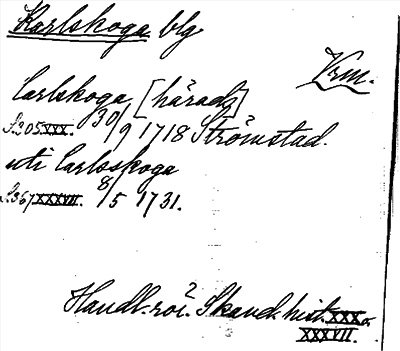 Karlskoga blg
Vrm.
Carlskoga [härad]
S.205 XXX. 30/9 1718 Strömstad.
uti Carlsskoga
S.367 XXXVII. 8/5 1731.
Handl. rör. Skand. hist. XXX o.
XXXVII.